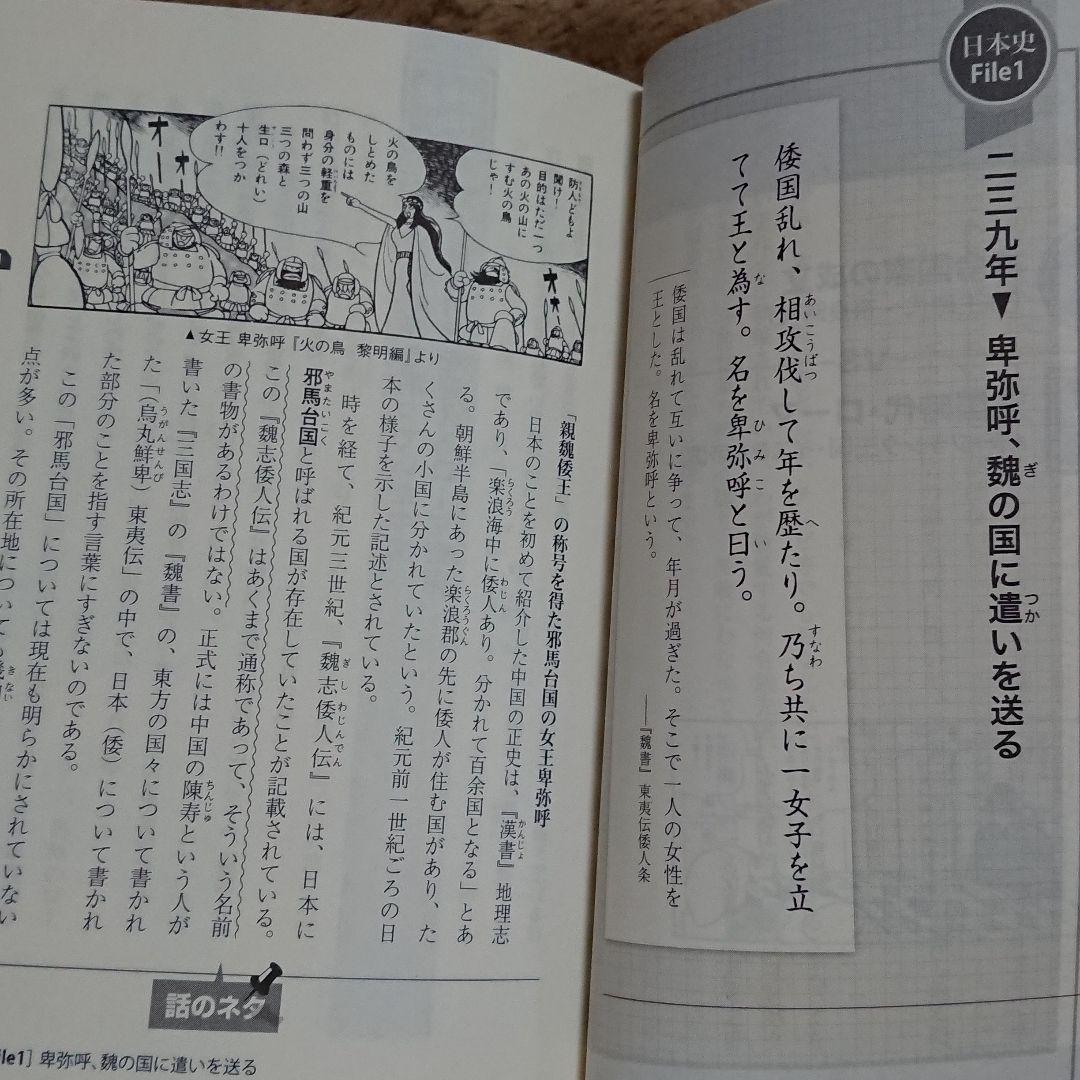 日本史
File1
二三九年▼卑弥呼、魏の国に遣いを送る
倭国乱れ、相攻伐して年を歴たり。乃ち共に一女子を立
てて王と為す。名を卑弥呼と曰う。
倭国は乱れて互いに争って、年月が過ぎた。そこで一人の女性を
王とした。名を卑弥呼という。
――『魏書』東夷伝倭人条
防人どもよ
聞け!
目的はただ一つ
あの火の山に
すむ火の鳥
じゃ!
火の鳥を
しとめた
ものには
身分の軽重を
問わず三つの山
三つの森と
生口(どれい)
十人をつか
わす!!
オーー
オー
オオー
▲女王 卑弥呼『火の鳥 黎明編』より
「親魏倭王」の称号を得た邪馬台国の女王卑弥呼
日本のことを初めて紹介した中国の正史は、『漢書』地理志
であり、「楽浪海中に倭人あり。分かれて百余国となる」とあ
る。朝鮮半島にあった楽浪郡の先に倭人が住む国があり、た
くさんの小国に分かれていたという。紀元前一世紀ごろの日
本の様子を示した記述とされている。
時を経て、紀元三世紀、『魏志倭人伝』には、日本に
邪馬台国と呼ばれる国が存在していたことが記載されている。
この『魏志倭人伝』はあくまで通称であって、そういう名前
の書物があるわけではない。正式には中国の陳寿という人が
書いた『三国志』の『魏書』の、東方の国々について書かれ
た「(烏丸鮮卑)東夷伝」の中で、日本(倭)について書かれ
た部分のことを指す言葉にすぎないのである。
この「邪馬台国」については現在も明らかにされていない
点が多い。その所在地についても
話のネタ
ile1] 卑弥呼、魏の国に遣いを送る